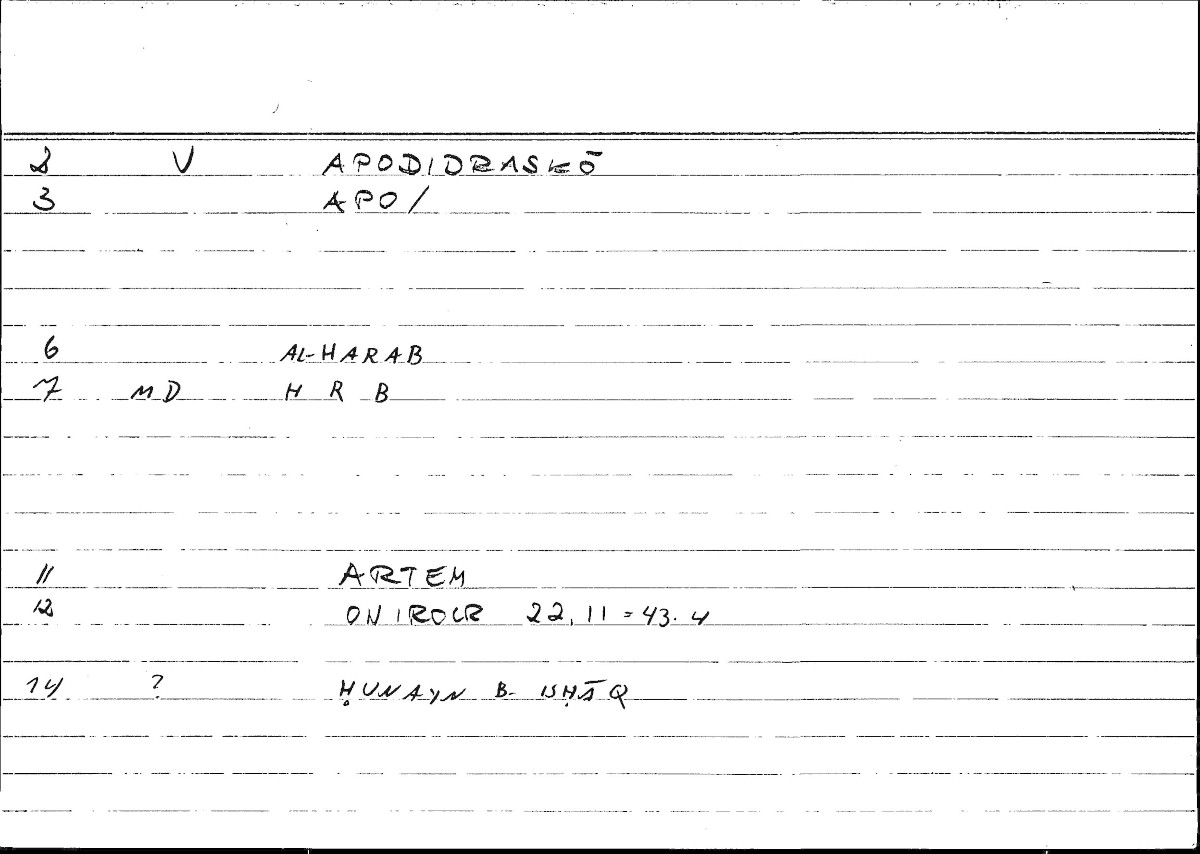 2 V APODIDRASKŌ
3 APO/
6 AL-HARAB
7 MD H R B
11 ARTEM
12 ONIROCR 22,11 = 43.4
14 ? ḤUNAYN B- ISḤĀQ